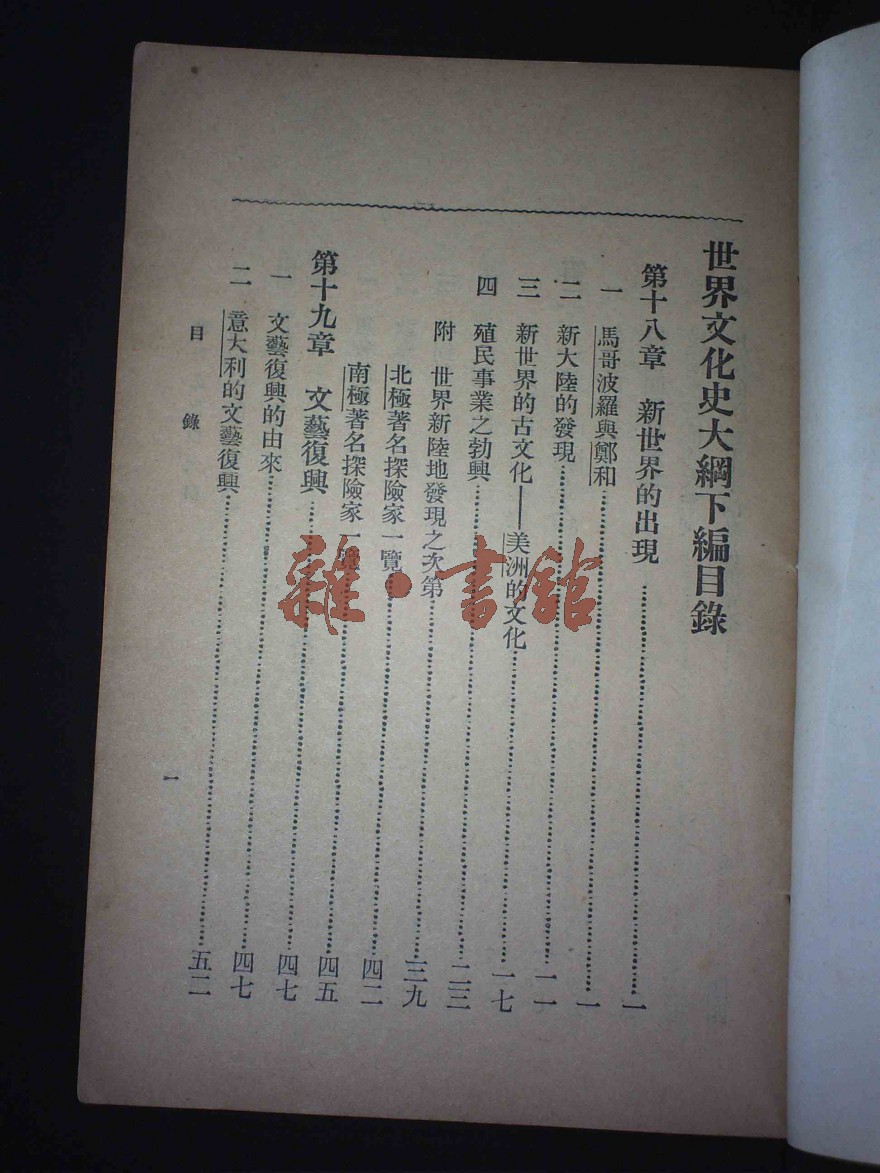 世界文化史大綱下編目錄
第十八章 新世界的出現……一
一 馬哥波羅與鄭和……一
二 新大陸的發現……一一
三 新世界的古文化——美洲的文化……一七
四 殖民事業之勃興……二三
附 世界新陸地發現之次第……三九
北極著名探險家一覽……四二
南極著名探險家一覽……四五
第十九章 文藝復興……四七
一 文藝復興的由來……四七
二 意大利的文藝復興……五二
目錄
一
雜·書館